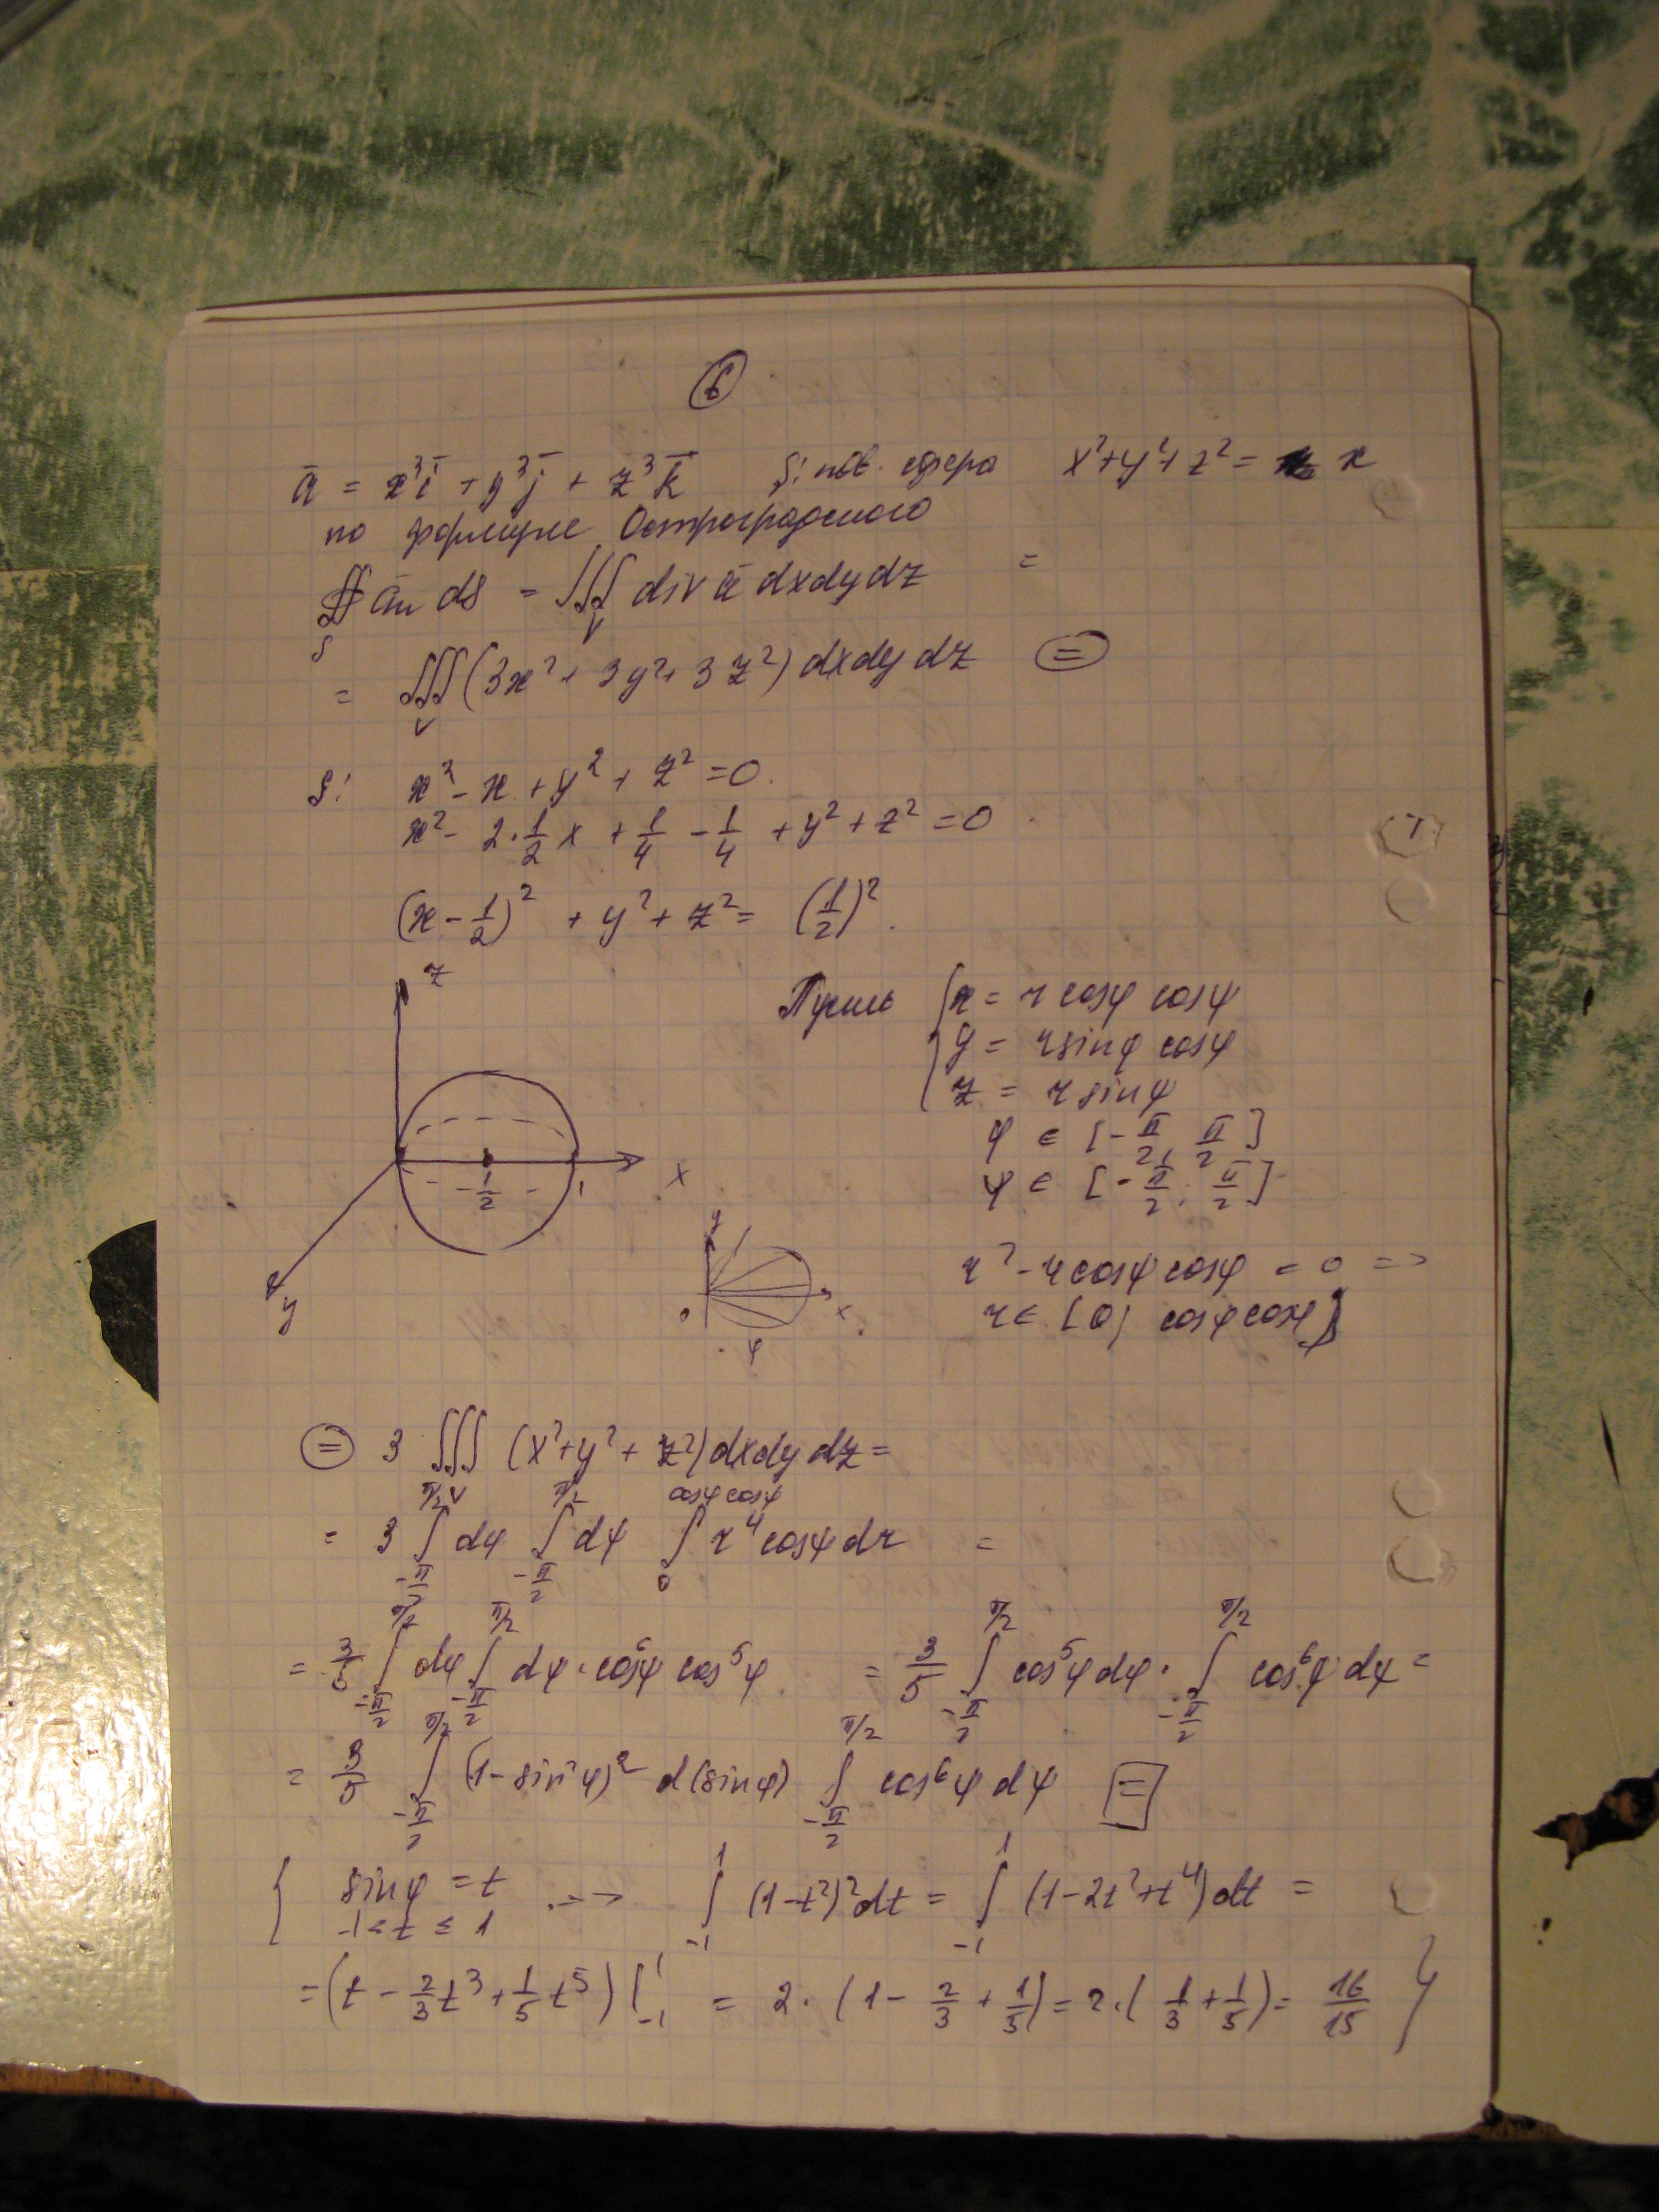 6
ā = x³ī + y³j̄ + z³k̄ S: пов. сфера x²+y²+z² = x
по формуле Остроградского
∯ āₙ dS = ∭ div ā dxdydz =
S V
= ∭ (3x² + 3y² + 3z²) dxdydz ⊜
V
S: x² - x + y² + z² = 0.
x² - 2·1/2 x + 1/4 - 1/4 + y² + z² = 0.
(x - 1/2)² + y² + z² = (1/2)².
z
Пусть { x = r cosφ cosψ
y = r sinφ cosψ
z = r sinψ
φ ∈ [-π/2, π/2]
ψ ∈ [-π/2; π/2]
1/2 1 x
y
y
0 x
φ
r² - r cosψ cosφ = 0 =>
r ∈ [0; cosφ cosψ]
⊜ 3 ∭ (x²+y²+z²) dxdydz =
V
= 3 ∫_{-π/2}^{π/2} dφ ∫_{-π/2}^{π/2} dψ ∫_0^{cosψ cosφ} r⁴ cosψ dr =
= 3/5 ∫_{-π/2}^{π/2} dφ ∫_{-π/2}^{π/2} dψ · cos⁶ψ cos⁵φ = 3/5 ∫_{-π/2}^{π/2} cos⁵φ dφ · ∫_{-π/2}^{π/2} cos⁶ψ dψ =
= 3/5 ∫_{-π/2}^{π/2} (1 - sin²φ)² d(sinφ) ∫_{-π/2}^{π/2} cos⁶ψ dψ [=]
{ sinφ = t --> ∫_{-1}^{1} (1-t²)² dt = ∫_{-1}^{1} (1-2t²+t⁴) dt =
-1 ≤ t ≤ 1
= (t - 2/3 t³ + 1/5 t⁵) |_{-1}^{1} = 2·(1 - 2/3 + 1/5) = 2·(1/3 + 1/5) = 16/15 }